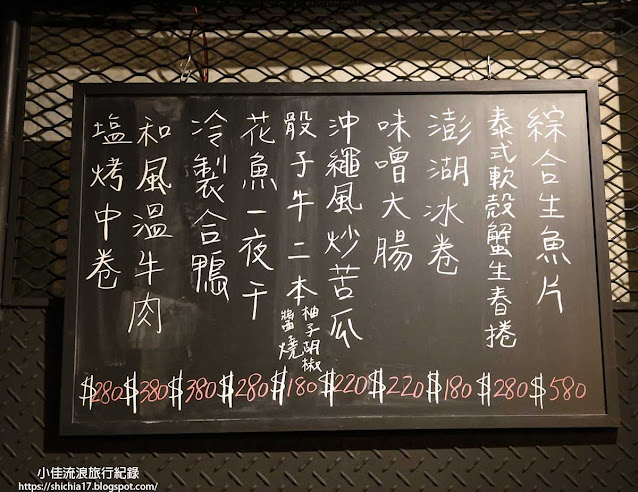 綜合生魚片
$580
泰式軟殼蟹生春捲
$280
澎湖冰卷
$180
味噌大腸
$220
沖繩風炒苦瓜
$220
骰子牛二本
柚子胡椒
醬燒
$180
花魚一夜干
$280
冷製合鴨
$380
和風溫牛肉
$380
塩烤中卷
$280
小佳流浪旅行紀錄
https://shichia17.blogspot.com/